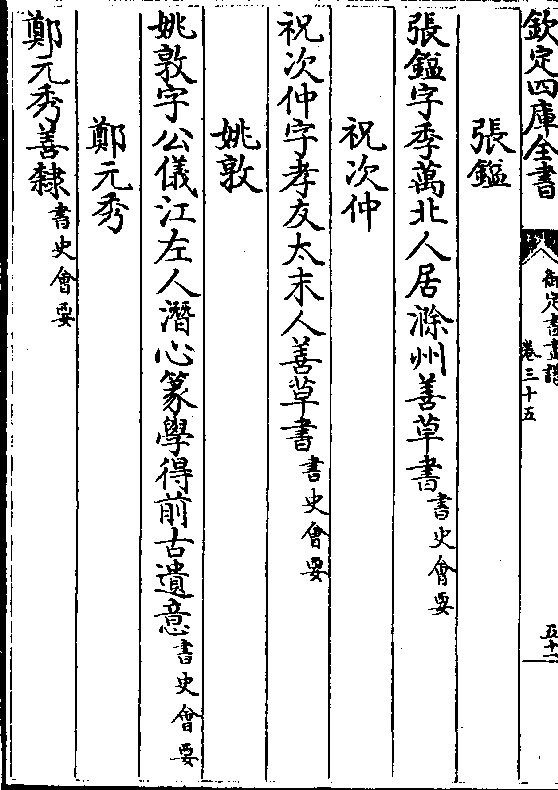 欽定四庫全書
御定書畫譜
卷三十五
五十一
張鎰
張鎰字季萬北人居滁州善草書書史會要
祝次仲
祝次仲字孝友太末人善草書書史會要
姚敦
姚敦字公儀江左人潛心篆學得前古遺意書史會要
鄭元秀
鄭元秀善隸書史會要